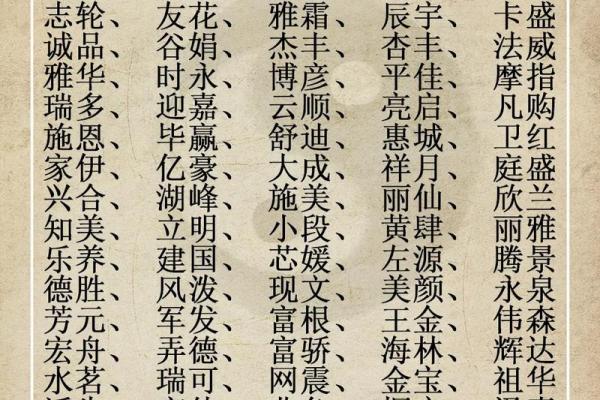 志轮、 友花、 雅霜、 辰宇、 卡盛
诚品、 谷娟、 杰丰、 杏丰、 法威
雅华、 时永、 博彦、 平佳、 摩指
瑞多、 迎嘉、 云顺、 亮启、 凡购
施恩、 毕赢、 舒迪、 惠城、 卫红
家伊、 亿豪、 大成、 祥月、 庭盛
兴合、 湖峰、 施美、 丽仙、 欣兰
知美、 立明、 小段、 黄肆、 丽雅
乐养、 建国、 芯媛、 左源、 腾景
德胜、 风泼、 现文、 美颜、 永泉
芳元、 军发、 富根、 王金、 伟森
宏舟、 弄德、 富骄、 海林、 辉达
水茗、 瑞可、 网震、 金宝、 祖华